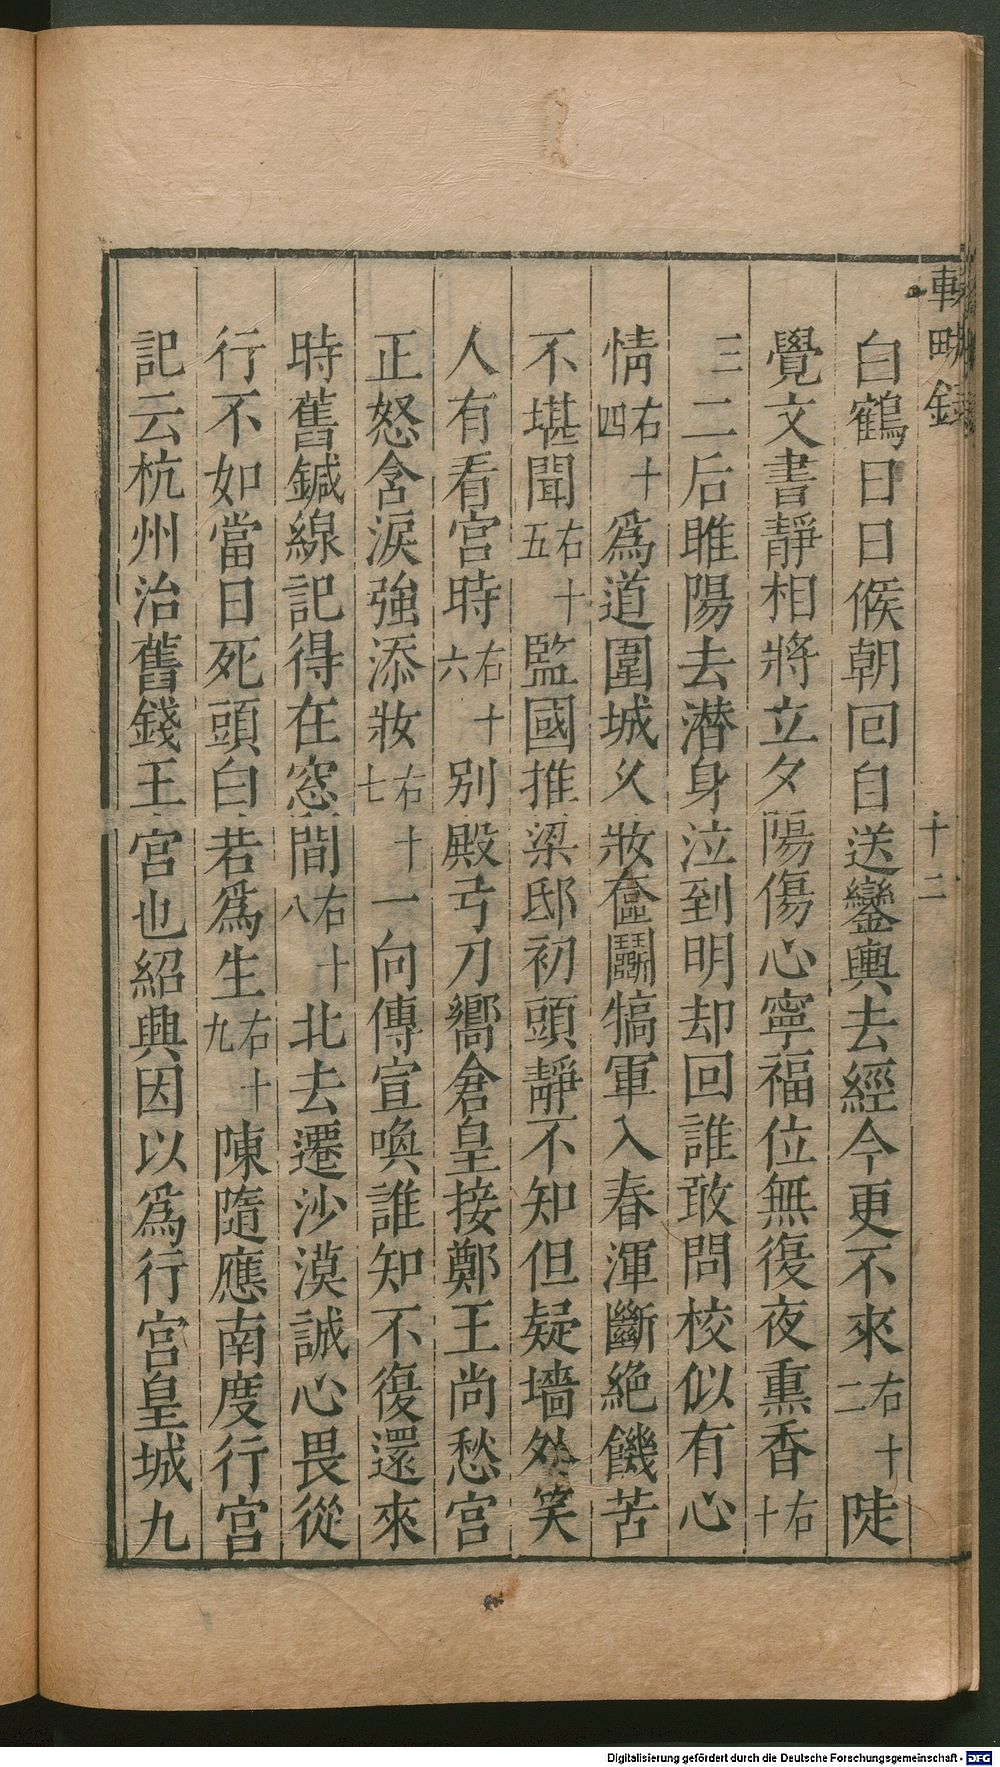 輟畊錄
十二
白鶴日日候朝回自送鑾輿去經今更不來右十二陡
覺文書靜相將立夕陽傷心寧福位無復夜熏香右十
三二后睢陽去潜身泣到明却回誰敢問校似有心
情右十四爲道圍城久妝奩鬭犒軍入春渾斷絕饑苦
不堪聞右十五監國推梁邸初頭靜不知但疑墻外笑
人有看宮時右十六別殿弓刀嚮倉皇接鄭王尚愁宮
正怒含淚強添妝右十七一向傳宣喚誰知不復還來
時舊鍼線記得在窓間右十八北去遷沙漠誠心畏從
行不如當日死頭白若爲生右十九陳隨應南度行宮
記云杭州治舊錢王宮也紹興因以爲行宮皇城九
Digitalisierung gefördert durch die Deutsche Forschungsgemeinschaft - DFG